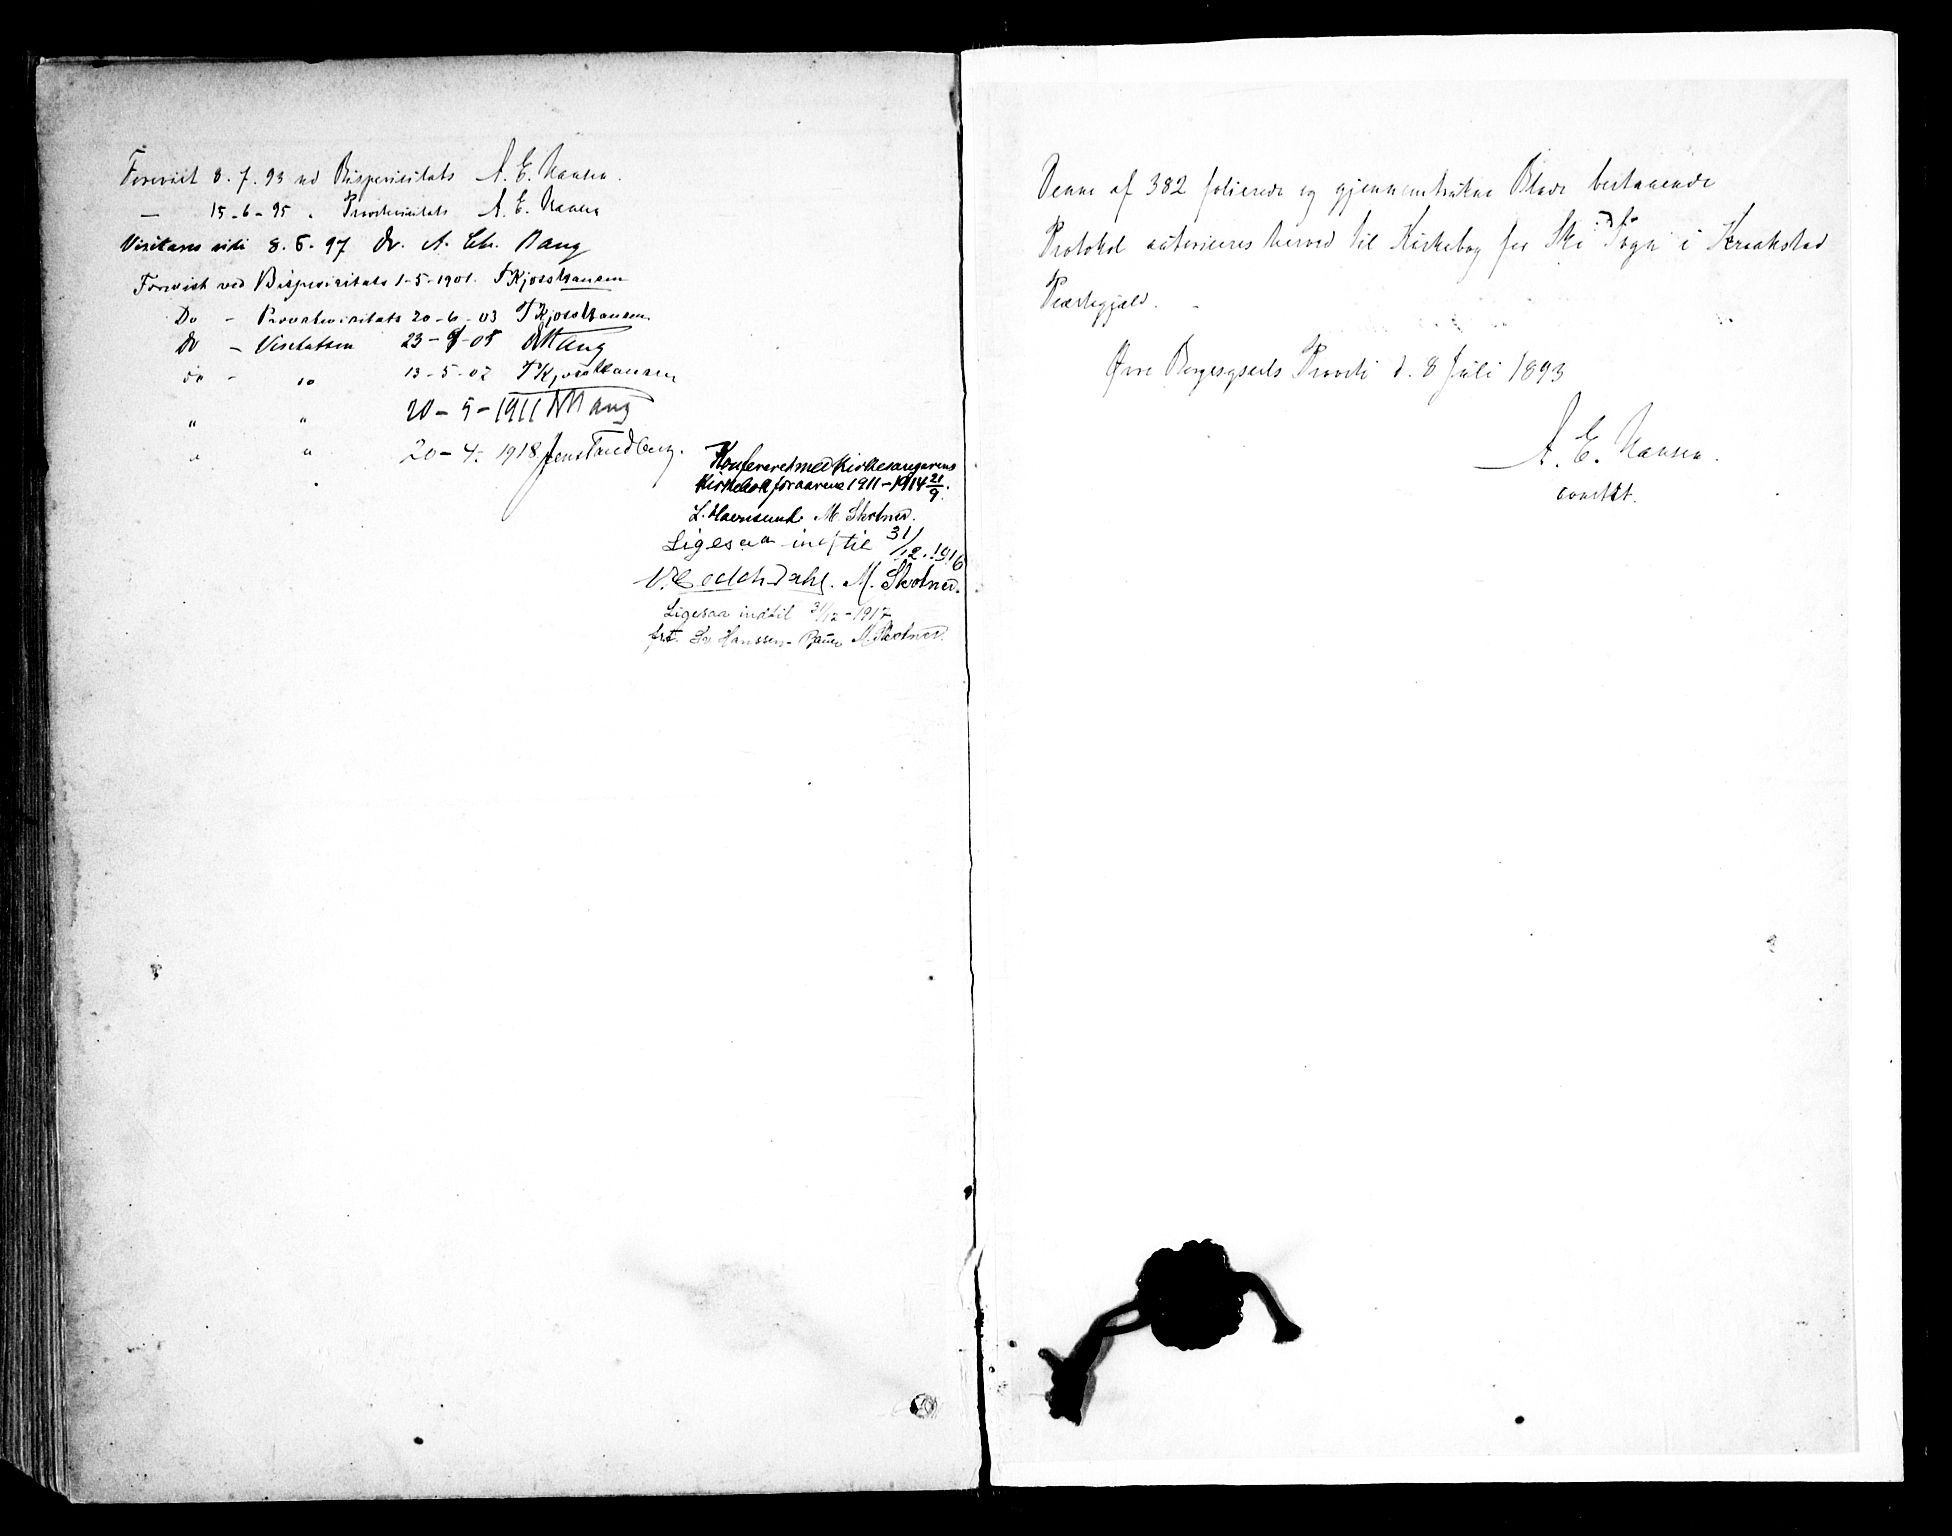 Forevist 8.7.93 ved Bispevisitats A. E. Hansen.
— 15-6-95 " Provstevisitats A. E. Hansen
Visitans vidi 8.5.97 Dr. A. Chr. Bang
Forevist ved Bispevisitats 1-5-1901. T Kjoss Hansen
Do - Provstevisitats 20-6-03 T Kjoss Hansen
Do - Visitatsen 23- -05 Bang
do - do 13-5-07 T Kjoss Hansen
" " 20-5-1911 Bang
" " 20-4-1918 Jens Tandberg.
Konfereret med Kirkesangerens
Kirkebok for aarene 1911-1914 21/9.
L. M. Skotner.
Ligesaa indtil 31/12.1916
M. Skotner.
Ligesaa indtil 31/12-1917
fst. Hanssen- M. Skotner.
Denne af 382 folierede og gjennemtrukne Blade bestaaende
Protokol autoriseres herved til Kirkebog for Ski Sogn i Kraakstad
Præstegjæld.
Øvre Borgesyssels Provsti d. 8 Juli 1893
A. E. Hansen.
constt.